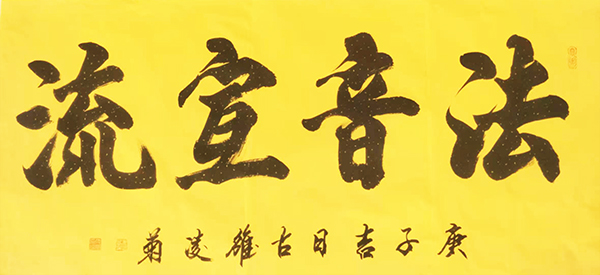 法音宣流
庚子吉日古雒凌菊